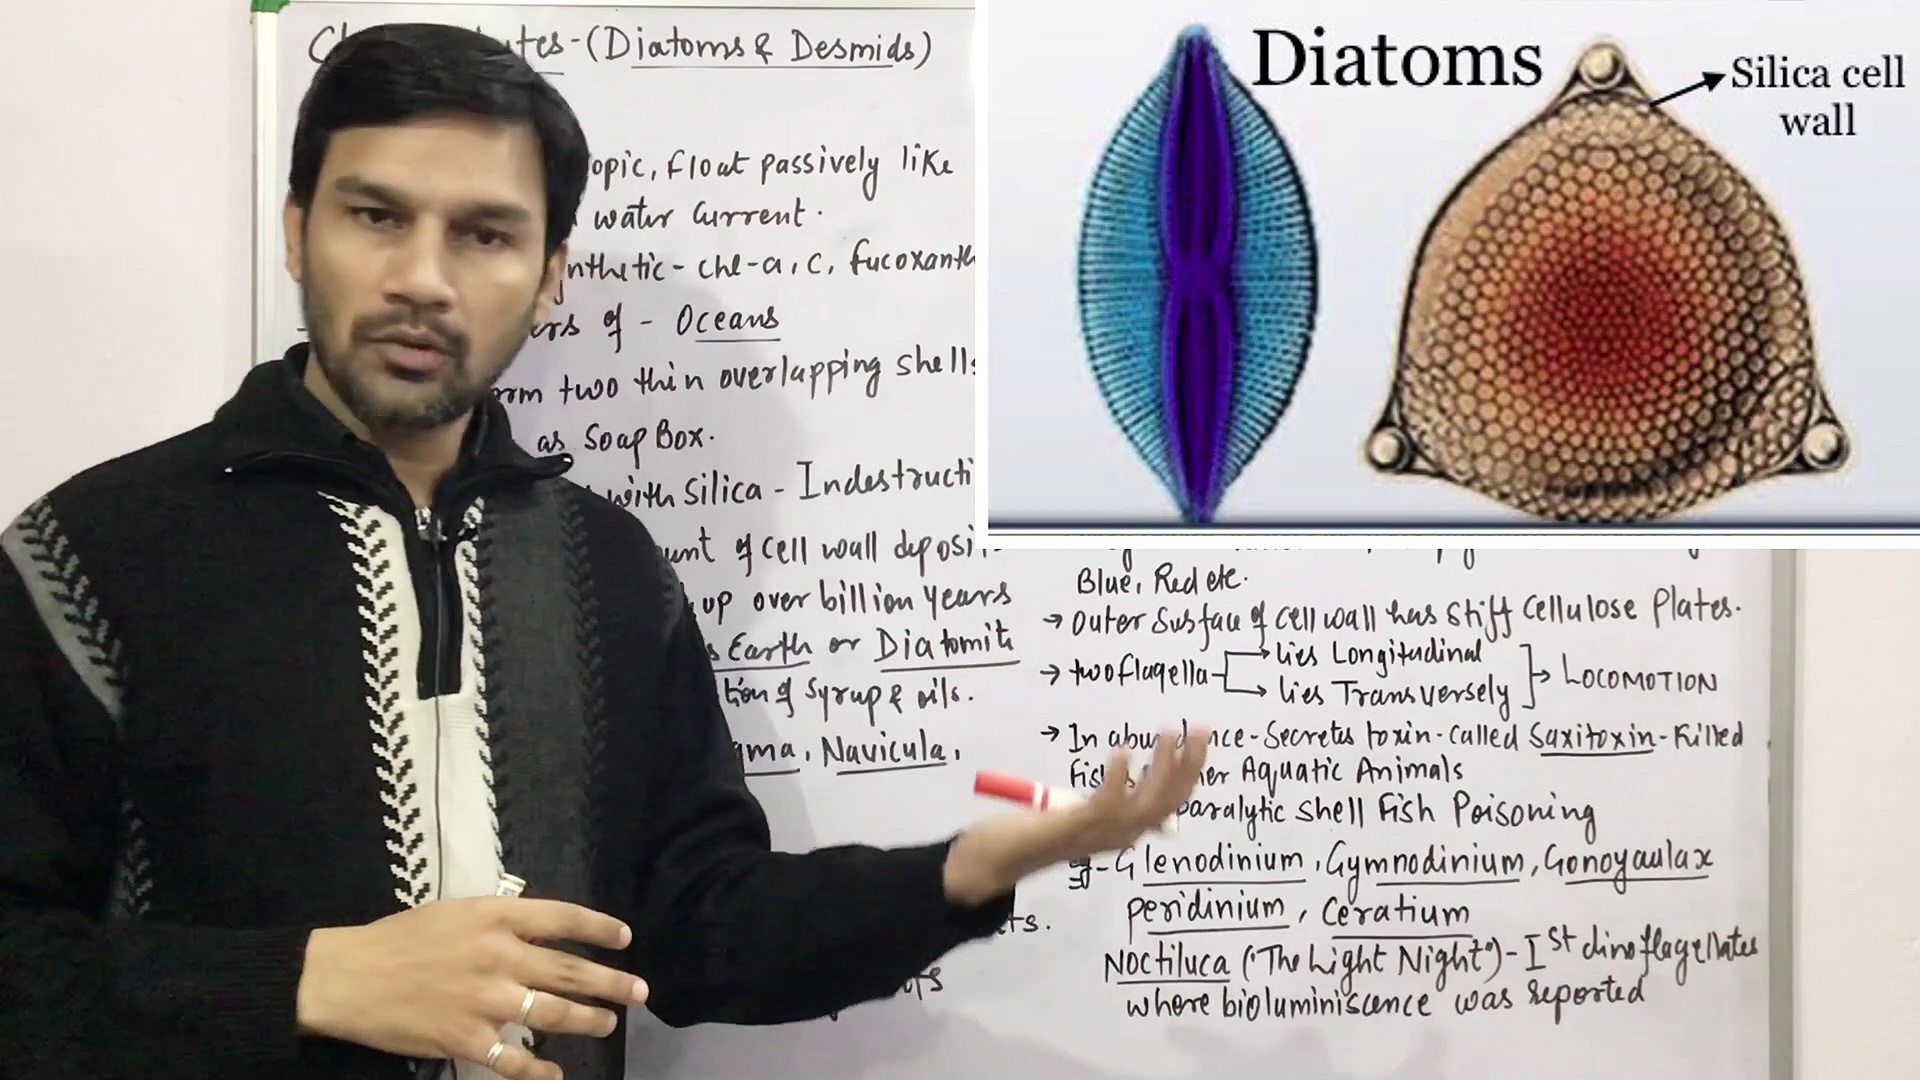 (Diatoms & Desmids)
float passively like
water current.
chl-a, c,
of - Oceans
two thin overlapping shells
as Soap Box.
with Silica -
of cell wall
up over billion years
Earth or
of Syrup & oils.
Navicula,
Diatoms
Silica cell
wall
Blue, Red etc.
→ Outer Surface of cell wall has stiff cellulose Plates.
→ two flagella
lies Longitudinal
lies Transversely
→ LOCOMOTION
→ In
Secretes toxin-called Saxitoxin-Killed
Aquatic Animals
paralytic shell Fish Poisoning
eg-Glenodinium, Gymnodinium, Gonoyaulax
peridinium, Ceratium
Noctiluca ("The Light Night")-Ist dinoflagellates
where bioluminiscence was reported